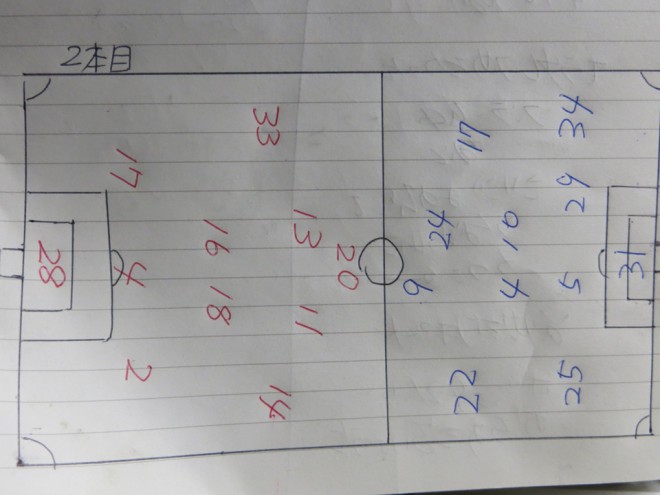 2本目
33
17
13
16
20
28
4
18
11
2
14
34
17
29
24
10
31
9
4
5
22
25